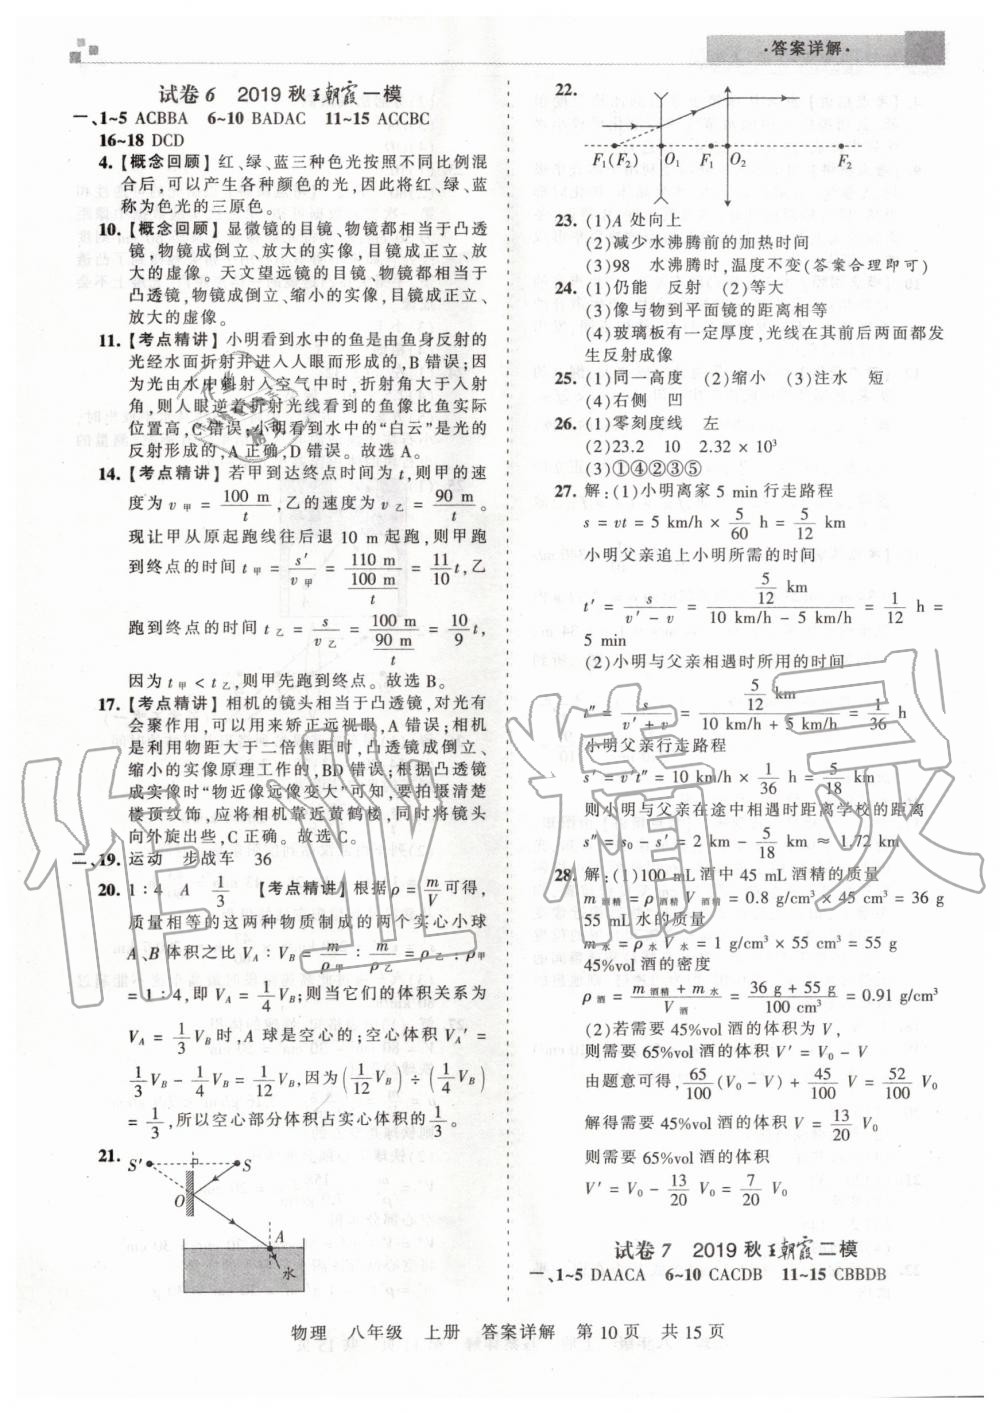 ·答案详解·
试卷6 2019秋王朝霞一模
一、1~5 ACBBA 6~10 BADAC 11~15 ACCBC
16~18 DCD
4.【概念回顾】红、绿、蓝三种色光按照不同比例混
合后,可以产生各种颜色的光,因此将红、绿、蓝
称为色光的三原色。
10.【概念回顾】显微镜的目镜、物镜都相当于凸透
镜,物镜成倒立、放大的实像,目镜成正立、放
大的虚像。天文望远镜的目镜、物镜都相当于
凸透镜,物镜成倒立、缩小的实像,目镜成正立、
放大的虚像。
11.【考点精讲】小明看到水中的鱼是由鱼身反射的
光经水面折射并进入人眼而形成的,B错误;因
为光由水中斜射入空气中时,折射角大于入射
角,则人眼逆着折射光线看到的鱼像比鱼实际
位置高,C错误;小明看到水中的“白云”是光的
反射形成的,A正确,D错误。故选A。
14.【考点精讲】若甲到达终点时间为t,则甲的速
度为v甲 = 100 m/t,乙的速度为v乙 = 90 m/t。
现让甲从原起跑线往后退10 m起跑,则甲跑
到终点的时间t甲 = s′/v甲 = 110 m/(100 m/t) = 11/10 t,乙
跑到终点的时间t乙 = s/v乙 = 100 m/(90 m/t) = 10/9 t,
因为t甲 < t乙,则甲先跑到终点。故选B。
17.【考点精讲】相机的镜头相当于凸透镜,对光有
会聚作用,可以用来矫正远视眼,A错误;相机
是利用物距大于二倍焦距时,凸透镜成倒立、
缩小的实像原理工作的,BD错误;根据凸透镜
成实像时“物近像远像变大”可知,要拍摄清楚
楼顶纹饰,应将相机靠近黄鹤楼,同时将镜头
向外旋出些,C正确。故选C。
二、19. 运动 步战车 36
20. 1:4 A 1/3 【考点精讲】根据ρ = m/V可得,
质量相等的这两种物质制成的两个实心小球
A、B体积之比VA:VB = m/ρ甲 : m/ρ乙 = ρ乙:ρ甲
= 1:4,即VA = 1/4 VB;则当它们的体积关系为
VA = 1/3 VB时,A球是空心的;空心体积VA′ =
1/3 VB - 1/4 VB = 1/12 VB,因为(1/12 VB) ÷ (1/4 VB)
= 1/3,所以空心部分体积占实心体积的1/3。
21. S′ S
O
A
水
22.
F1(F2) O1 F1 O2 F2
23. (1)A处向上
(2)减少水沸腾前的加热时间
(3)98 水沸腾时,温度不变(答案合理即可)
24. (1)仍能 反射 (2)等大
(3)像与物到平面镜的距离相等
(4)玻璃板有一定厚度,光线在其前后两面都发
生反射成像
25. (1)同一高度 (2)缩小 (3)注水 短
(4)右侧 凹
26. (1)零刻度线 左
(2)23.2 10 2.32 × 10³
(3)①④②③⑤
27. 解:(1)小明离家5 min行走路程
s = vt = 5 km/h × 5/60 h = 5/12 km
小明父亲追上小明所需的时间
t′ = s/(v′ - v) = (5/12 km)/(10 km/h - 5 km/h) = 1/12 h =
5 min
(2)小明与父亲相遇时所用的时间
t″ = s/(v′ + v) = (5/12 km)/(10 km/h + 5 km/h) = 1/36 h
小明父亲行走路程
s′ = v′t″ = 10 km/h × 1/36 h = 5/18 km
则小明与父亲在途中相遇时距离学校的距离
s″ = s0 - s′ = 2 km - 5/18 km ≈ 1.72 km
28. 解:(1)100 mL酒中45 mL酒精的质量
m酒精 = ρ酒精V酒精 = 0.8 g/cm³ × 45 cm³ = 36 g
55 mL水的质量
m水 = ρ水V水 = 1 g/cm³ × 55 cm³ = 55 g
45%vol酒的密度
ρ酒 = (m酒精 + m水)/V酒 = (36 g + 55 g)/100 cm³ = 0.91 g/cm³
(2)若需要45%vol酒的体积为V,
则需要65%vol酒的体积V′ = V0 - V
由题意可得,65/100 (V0 - V) + 45/100 V = 52/100 V0
解得需要45%vol酒的体积V = 13/20 V0
则需要65%vol酒的体积
V′ = V0 - 13/20 V0 = 7/20 V0
试卷7 2019秋王朝霞二模
一、1~5 DAACA 6~10 CACDB 11~15 CBBDB
物理 八年级 上册 答案详解 第10页 共15页
作业精灵